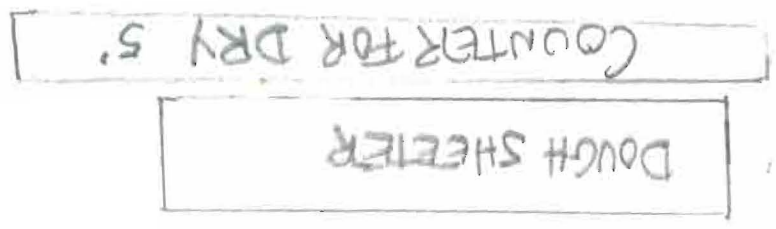 DOUGH SHEETER
COUNTER FOR DRY 5'